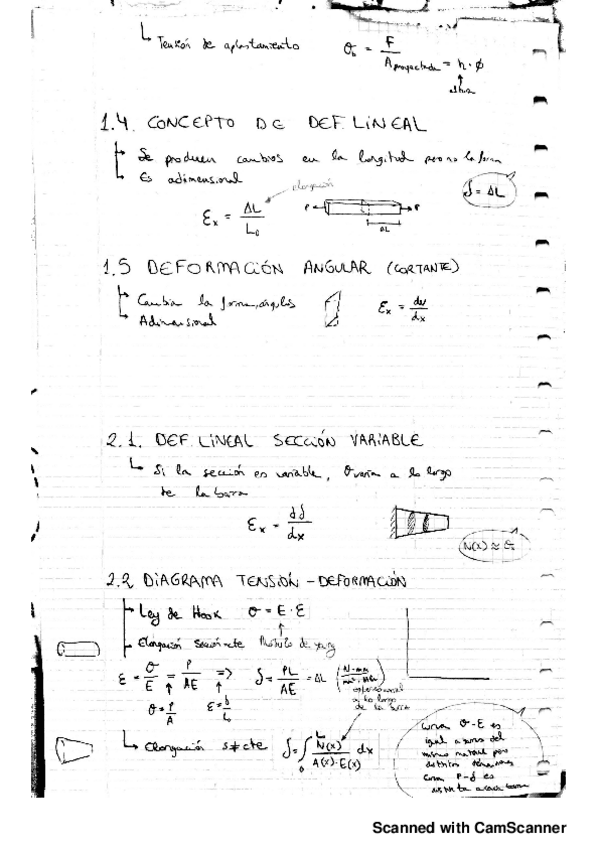 ↳ Tensión de aplastamiento σ_b = F / A proyectada = h · ϕ
↑
1.4. CONCEPTO DE DEF. LINEAL
↳ Se producen cambios en la longitud pero no la forma
↳ Es adimensional
elongación
δ = ΔL
εx = ΔL / L₀
P P
ΔL
1.5 DEFORMACIÓN ANGULAR (CORTANTE)
↳ Cambia la forma, ángulos εx = dv / dx
↳ Adimensional
2.1. DEF. LINEAL SECCIÓN VARIABLE
↳ Si la sección es variable, σ varía a lo largo
de la barra
εx = dδ / dx
N(x) ≈
2.2 DIAGRAMA TENSIÓN - DEFORMACIÓN
Ley de Hook σ = E · ε
↑
Elongación sección cte Módulo de young
ε = σ / E = P / AE => δ = PL / AE = ΔL
σ = P / A ε = δ / L₀
a lo largo
de la barra
↳ Elongación s ≠ cte δ = ∫₀ᴸ N(x) / A(x)·E(x) dx
Curva σ-ε es
igual
mismo material para
distintas
Curva P-δ es
distinta a cada barra
Scanned with CamScanner